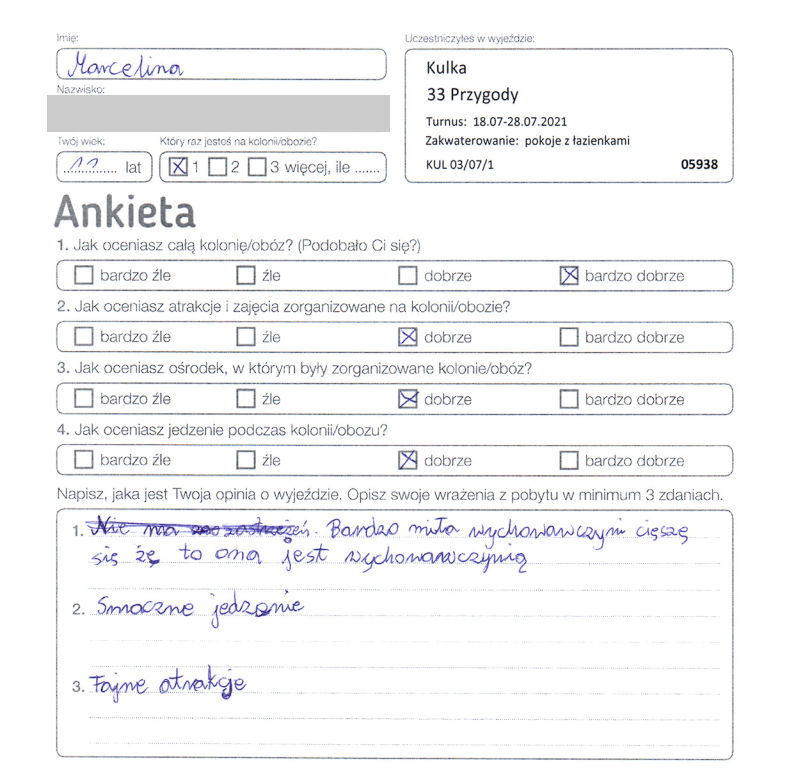 Imię:
Marcelina
Nazwisko:
Twój wiek:
11 lat
Który raz jesteś na kolonii/obozie?
1 2 3 więcej, ile .......
Uczestniczyłeś w wyjeździe:
Kulka
33 Przygody
Turnus: 18.07-28.07.2021
Zakwaterowanie: pokoje z łazienkami
KUL 03/07/1 05938
Ankieta
1. Jak oceniasz całą kolonię/obóz? (Podobało Ci się?)
bardzo źle źle dobrze bardzo dobrze
2. Jak oceniasz atrakcje i zajęcia zorganizowane na kolonii/obozie?
bardzo źle źle dobrze bardzo dobrze
3. Jak oceniasz ośrodek, w którym były zorganizowane kolonie/obóz?
bardzo źle źle dobrze bardzo dobrze
4. Jak oceniasz jedzenie podczas kolonii/obozu?
bardzo źle źle dobrze bardzo dobrze
Napisz, jaka jest Twoja opinia o wyjeździe. Opisz swoje wrażenia z pobytu w minimum 3 zdaniach.
1. Nie ma zastrzeżeń. Bardzo miła wychowawczyni cięszę
się żę to ona jest wychowawczynią
2. Smaczne jedzenie
3. Fajne atrakcje